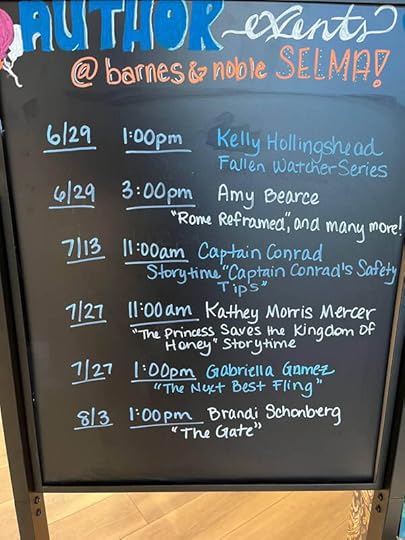 AUTHOR events
@ barnes & noble SELMA!
6/29 1:00pm Kelly Hollingshead
Fallen Watcher Series
6/29 3:00pm Amy Bearce
"Rome Reframed", and many more!
7/13 11:00am Captain Conrad
Storytime "Captain Conrad's Safety
Tips"
7/27 11:00am Kathey Morris Mercer
"The Princess Saves the Kingdom Of
Honey" Storytime
7/27 1:00pm Gabriella Gamez
"The Next Best Fling"
8/3 1:00pm Brandi Schonberg
"The Gate"